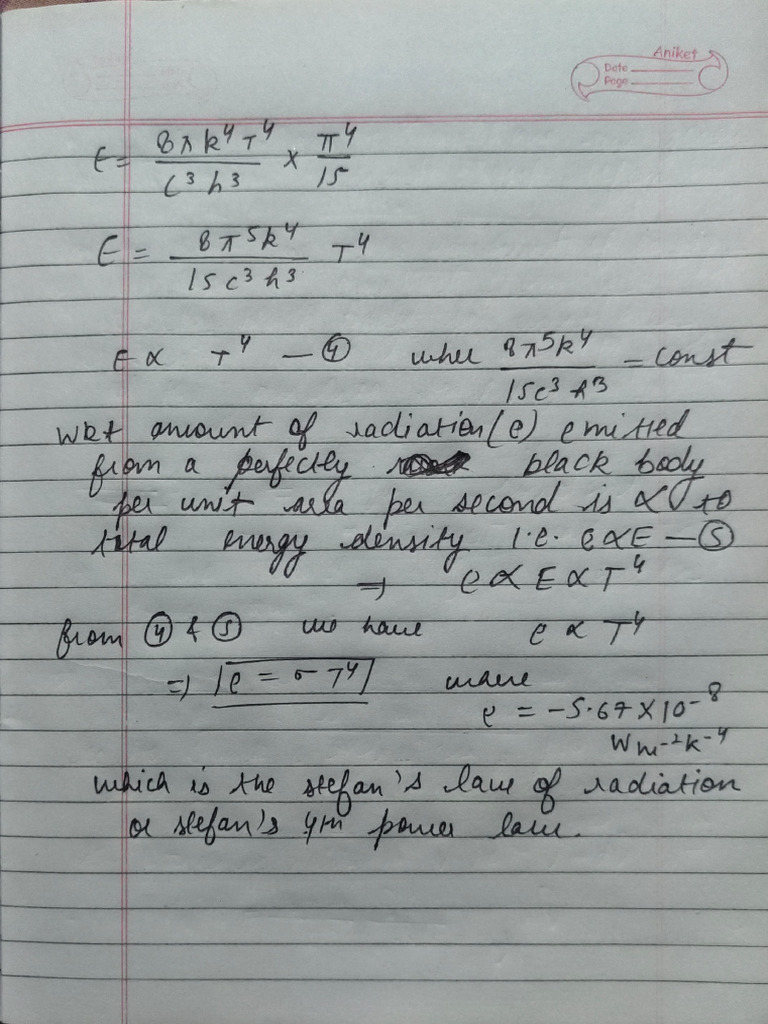 Aniket
Date
Page
E = 8πk⁴T⁴/c³h³ × π⁴/15
E = 8π⁵k⁴/15c³h³ T⁴
E ∝ T⁴ — ④ wher 8π⁵k⁴/15c³h³ = const
WKt amount of radiation (e) emitted
from a perfectly black body
per unit area per second is ∝ to
total energy density i.e. e∝E — ⑤
⇒ e ∝ E ∝ T⁴
from ④ & ⑤ we have e ∝ T⁴
⇒ |e = σ T⁴| where
e = -5.67 × 10⁻⁸
Wm⁻²k⁻⁴
which is the stefan's law of radiation
or stefan's 4th power law.